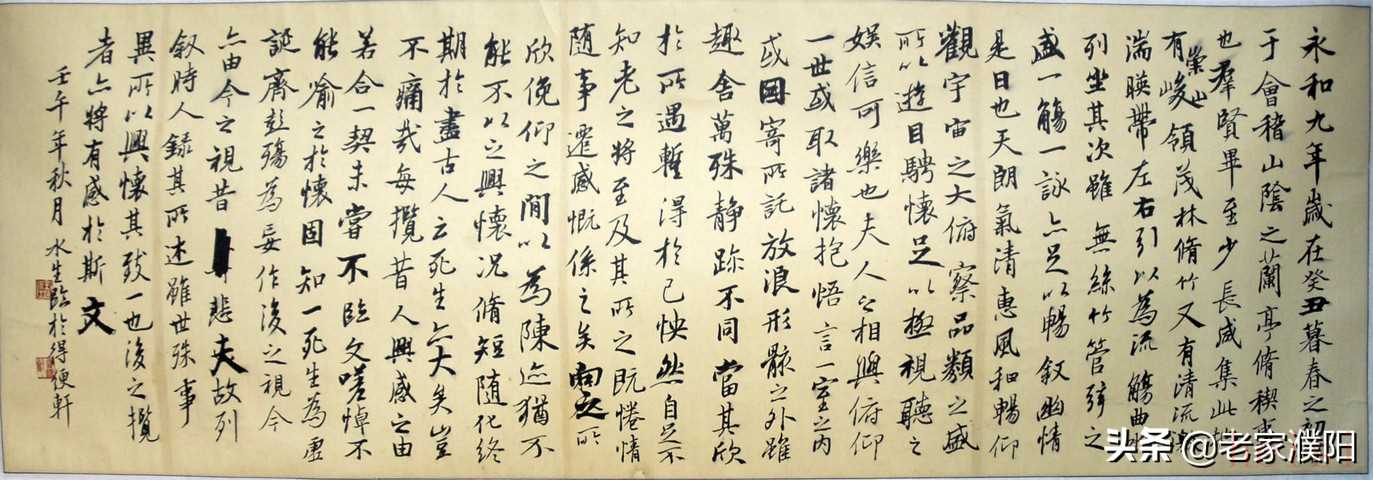 永和九年歲在癸丑暮春之初
于會稽山陰之蘭亭脩稧事
也羣賢畢至少長咸集此地
有崇山峻領茂林脩竹又有清流激
湍暎帶左右引以為流觴曲水
列坐其次雖無絲竹管弦之
盛一觴一詠亦足以暢叙幽情
是日也天朗氣清惠風和暢仰
觀宇宙之大俯察品類之盛
所以遊目騁懷足以極視聽之
娛信可樂也夫人之相與俯仰
一世或取諸懷抱悟言一室之內
或因寄所託放浪形骸之外雖
趣舍萬殊靜躁不同當其欣
於所遇暫得於己怏然自足不
知老之將至及其所之既惓情
随事遷感慨係之矣向之所
欣俛仰之間以為陳迹猶不
能不以之興懷況脩短随化終
期於盡古人云死生亦大矣豈
不痛哉每攬昔人興感之由
若合一契未嘗不臨文嗟悼不
能喻之於懷固知一死生為虛
誕齊彭殤為妄作後之視今
亦由今之視昔悲夫故列
叙時人錄其所述雖世殊事
異所以興懷其致一也後之攬
者亦將有感於斯文
壬午年秋月水生臨於得便軒
头条@老家濮阳